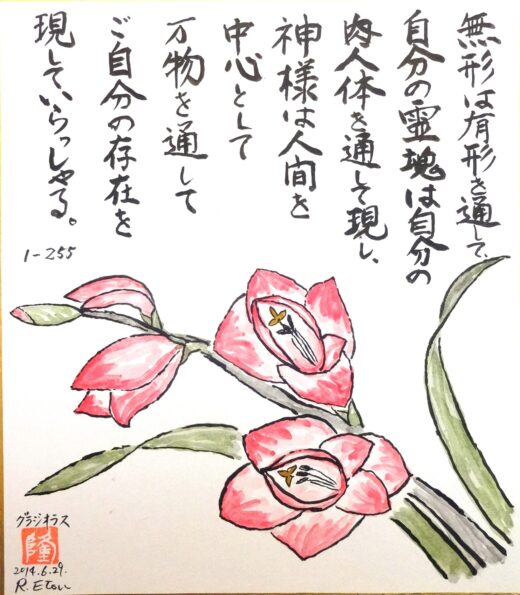 無形は有形を通して、
自分の霊魂は自分の
肉人体を通して現し、
神様は人間を
中心として
万物を通して
ご自分の存在を
現していらっしゃる。
1-255
グラジオラス
隆
2014.6.29.
R. Etou